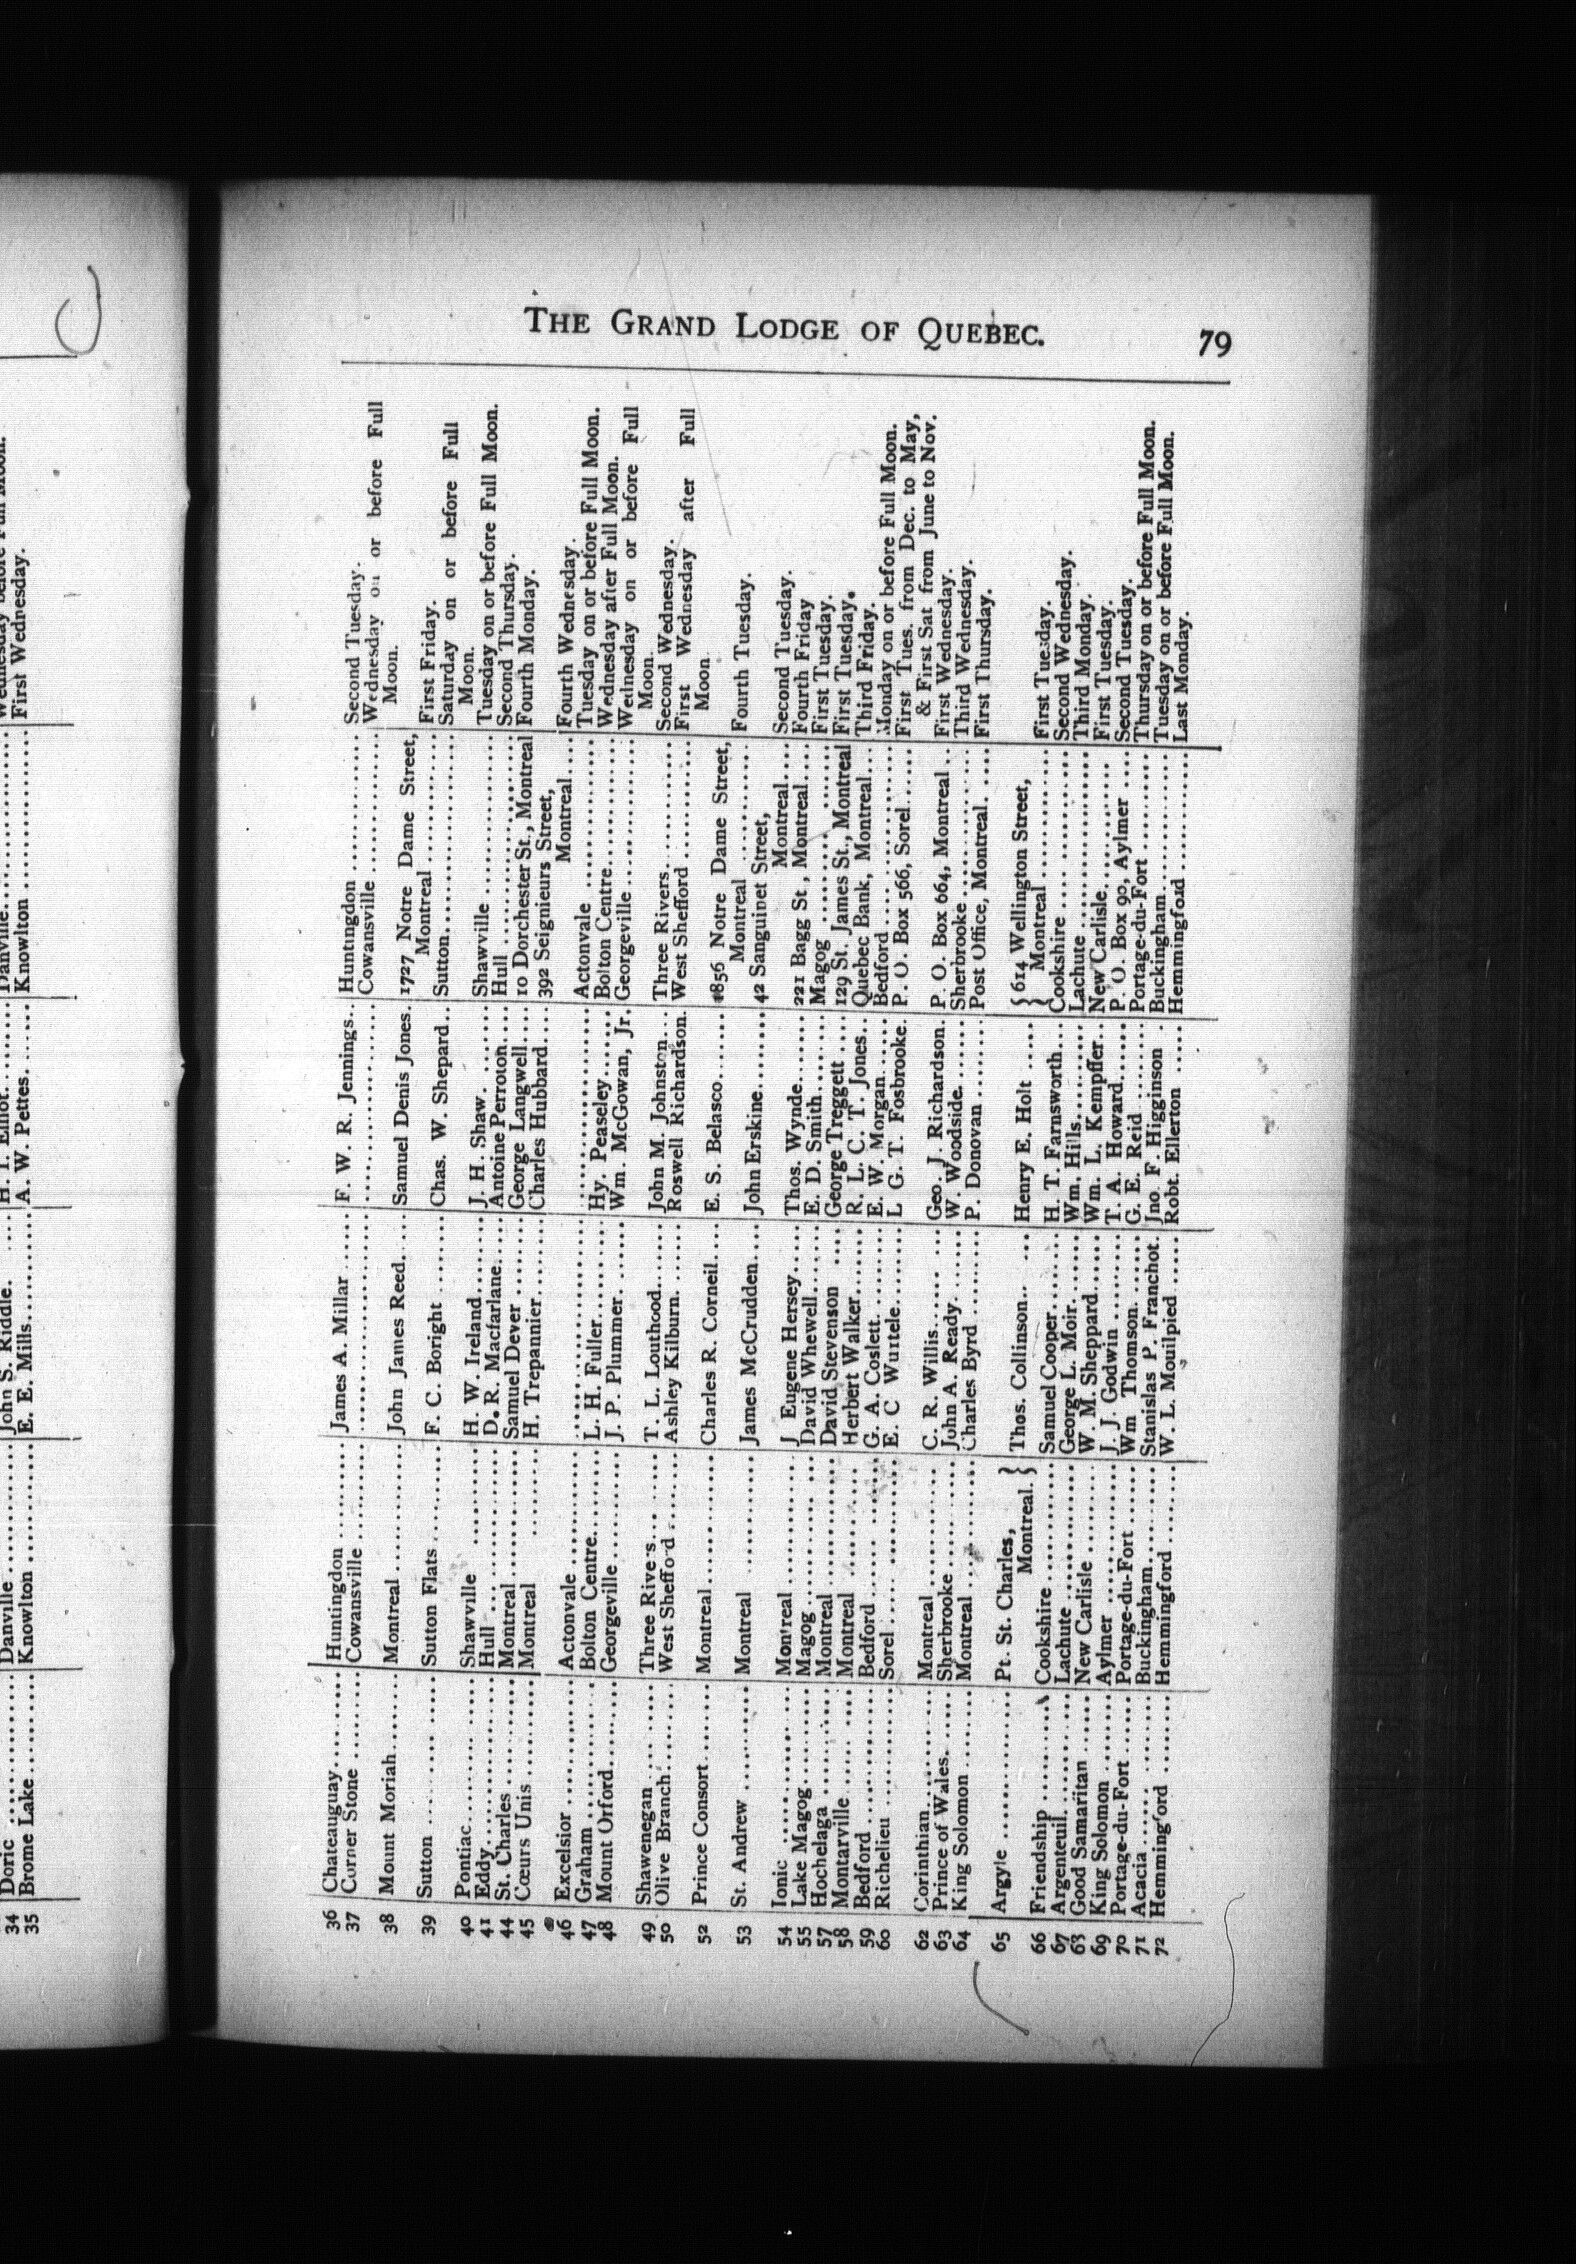 THE GRAND LODGE OF QUEBEC.
79
34 Doric Danville John S. Riddle. H. T. Elliot Danville
35 Brome Lake Knowlton E. E. Mills A. W. Pettes Knowlton First Wednesday.
36 Chateauguay Huntingdon James A. Millar F. W. R. Jennings Huntingdon Second Tuesday.
37 Corner Stone Cowansville Cowansville Wednesday on or before Full
Moon.
38 Mount Moriah Montreal John James Reed Samuel Denis Jones 1727 Notre Dame Street,
Montreal First Friday.
39 Sutton Sutton Flats F. C. Boright Chas. W. Shepard Sutton Saturday on or before Full
Moon.
40 Pontiac Shawville H. W. Ireland J. H. Shaw Shawville Tuesday on or before Full Moon.
41 Eddy Hull D. R. Macfarlane Antoine Perroton Hull Second Thursday.
44 St. Charles Montreal Samuel Dever George Langwell 10 Dorchester St., Montreal Fourth Monday.
45 Cœurs Unis Montreal H. Trepannier Charles Hubbard 392 Seignieurs Street,
Montreal Fourth Wednesday.
46 Excelsior Actonvale Actonvale Tuesday on or before Full Moon.
47 Graham Bolton Centre L. H. Fuller Hy. Peaseley Bolton Centre Wednesday after Full Moon.
48 Mount Orford Georgeville J. P. Plummer Wm. McGowan, Jr. Georgeville Wednesday on or before Full
Moon.
49 Shawenegan Three Rivers T. L. Louthood John M. Johnston Three Rivers Second Wednesday.
50 Olive Branch West Shefford Ashley Kilburn Roswell Richardson West Shefford First Wednesday after Full
Moon
52 Prince Consort Montreal Charles R. Corneil E. S. Belasco 1856 Notre Dame Street,
Montreal Fourth Tuesday.
53 St. Andrew Montreal James McCrudden John Erskine 42 Sanguinet Street,
Montreal Second Tuesday.
54 Ionic Montreal J Eugene Hersey Thos. Wynde 221 Bagg St., Montreal Fourth Friday
55 Lake Magog Magog David Whewell E. D. Smith Magog First Tuesday.
57 Hochelaga Montreal David Stevenson George Treggett 129 St. James St., Montreal First Tuesday.
58 Montarville Montreal Herbert Walker R. L. C. T. Jones Quebec Bank, Montreal Third Friday.
59 Bedford Bedford G. A. Coslett E. W. Morgan Bedford Monday on or before Full Moon.
60 Richelieu Sorel E. C Wurtele L G. T. Fosbrooke P. O. Box 566, Sorel First Tues. from Dec. to May,
& First Sat from June to Nov.
62 Corinthian Montreal C. R. Willis Geo. J. Richardson P. O. Box 664, Montreal First Wednesday.
63 Prince of Wales Sherbrooke John A. Ready W. Woodside Sherbrooke Third Wednesday.
64 King Solomon Montreal Charles Byrd P. Donovan Post Office, Montreal First Thursday.
65 Argyle Pt. St. Charles, Thos. Collinson Henry E. Holt 614 Wellington Street,
Montreal. Montreal First Tuesday.
66 Friendship Cookshire Samuel Cooper H. T. Farnsworth Cookshire Second Wednesday.
67 Argenteuil Lachute George L. Moir Wm. Hills Lachute Third Monday.
68 Good Samaritan New Carlisle W. M. Sheppard Wm. L. Kempffer New Carlisle First Tuesday.
69 King Solomon Aylmer J. J. Godwin T. A. Howard P. O. Box 90, Aylmer Second Tuesday.
70 Portage-du-Fort Portage-du-Fort Wm Thomson G. E. Reid Portage-du-Fort Thursday on or before Full Moon.
71 Acacia Buckingham Stanislas P. Franchot Jno. F. Higginson Buckingham Tuesday on or before Full Moon.
72 Hemmingford Hemmingford W. L. Mouilpied Robt. Ellerton Hemmingford Last Monday.